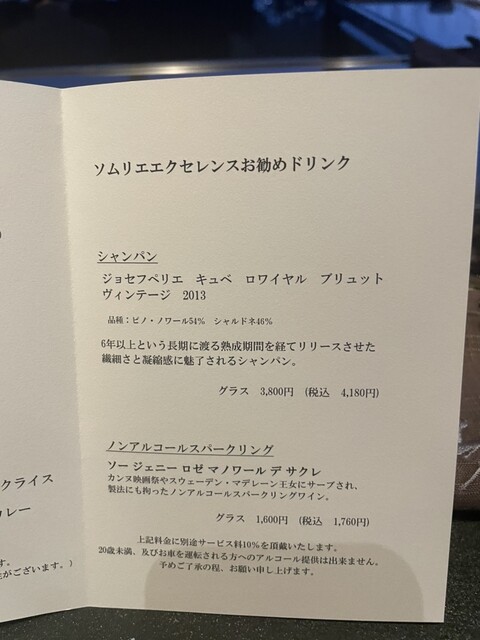 ソムリエエクセレンスお勧めドリンク
シャンパン
ジョセフペリエ キュベ ロワイヤル ブリュット
ヴィンテージ 2013
品種：ピノ・ノワール54% シャルドネ46%
6年以上という長期に渡る熟成期間を経てリリースさせた
繊細さと凝縮感に魅了されるシャンパン。
グラス 3,800円 （税込 4,180円）
ノンアルコールスパークリング
ソー ジェニー ロゼ マノワール デ サクレ
カンヌ映画祭やスウェーデン・マデレーン王女にサーブされ、
製法にも拘ったノンアルコールスパークリングワイン。
グラス 1,600円 （税込 1,760円）
上記料金に別途サービス料10%を頂戴いたします。
20歳未満、及びお車を運転される方へのアルコール提供は出来ません。
予めご了承の程、お願い申し上げます。
クライス
カレー
す。
がございます。）